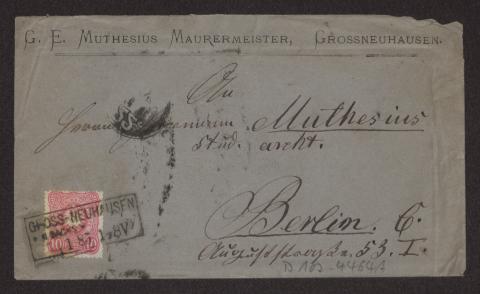 G. E. MUTHESIUS MAURERMEISTER, GROSSNEUHAUSEN.
An
Herrn Hermann Muthesius
stud. archt.
Berlin. C.
Auguststraße 53. I.
GROSS-NEUHAUSEN
10
D 102-4464